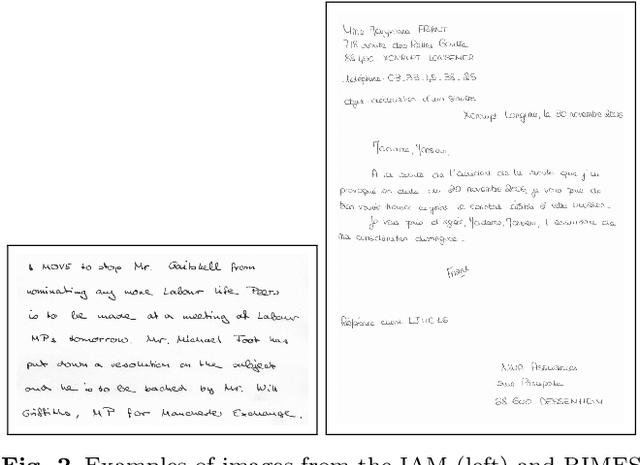 A MOVE to stop Mr. Gaitskell from
nominating any more Labour life Peers
is to be made at a meeting of Labour
MPs tomorrow. Mr. Michael Foot has
put down a resolution on the subject
and he is to be backed by Mr. Will
Griffiths, MP for Manchester Exchange.
718 route des
88400 XONRUPT LONGEMER
téléphone 03.93.45.38.25
objet: déclaration d'un sinistre
Xonrupt Longemer, le 20 novembre 2006
Madame, Monsieur,
A la suite de l'accident de la route que j'ai
provoqué en date du 20 novembre 2006, je vous prie de
bien vouloir trouver ci-joint le constat
Je vous prie d'agréer, Madame, Monsieur, l'assurance de
ma considération
Référence client
68 600 DESSENHEIM
Fig. 2. Examples of images from the IAM (left) and RIMES